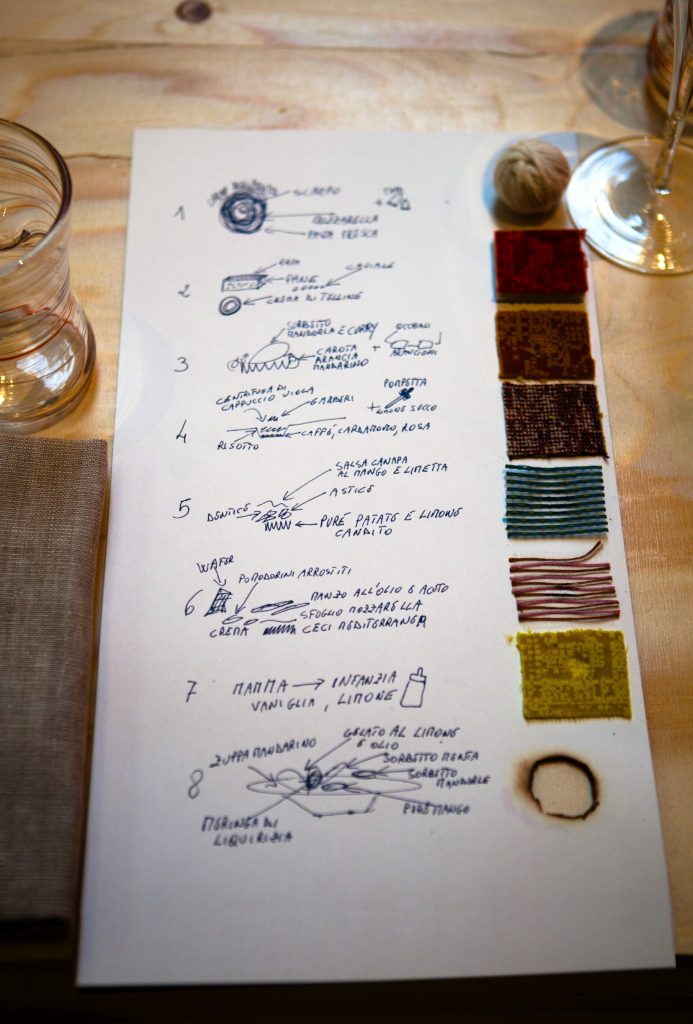 1
MOZZARELLA
PASTA FRESCA
2
PANE
CAVIALE
CREMA DI TELLINE
3
SORBETTO
MANDORLA E CURRY
CAROTA
ARANCIA
MANDARINO
+
OCCHIALI
ARANCIONI
4
CENTRIFUGA DI
CAPPUCCIO VIOLA
GAMBERI
+
POMPETTA
LIMONE SECCO
RISOTTO
CAFFÈ, CARDAMOMO, ROSA
5
SALSA CANAPA
AL MANGO E LIMETTA
DENTICE
ASTICE
PURÉ PATATE E LIMONE
CANDITO
6
WAFER
POMODORINI ARROSTITI
MANZO ALL'OLIO E ACETO
SFOGLIO MOZZARELLA
CREMA
CECI MEDITERRANEA
7
MAMMA → INFANZIA
VANIGLIA, LIMONE
8
ZUPPA MANDARINO
GELATO AL LIMONE
E OLIO
SORBETTO MENTA
SORBETTO
MANDORLE
PURÉ MANGO
MERINGA DI
LIQUIRIZIA